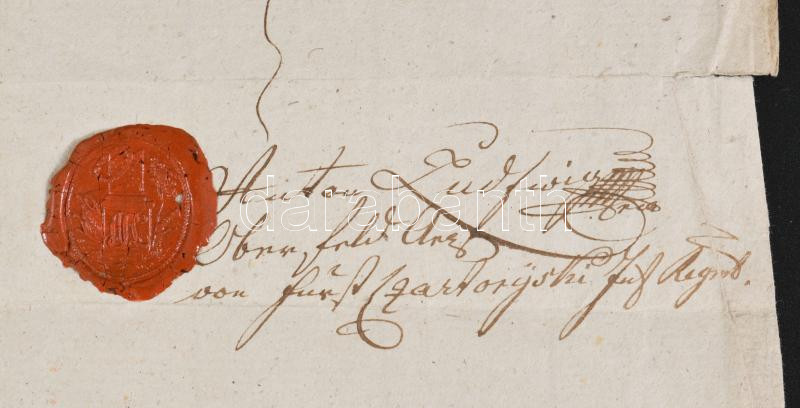 Anton Ludwig
Ober feld Arzt
von fürst Czartorÿski Inf Regmt.
darabanth